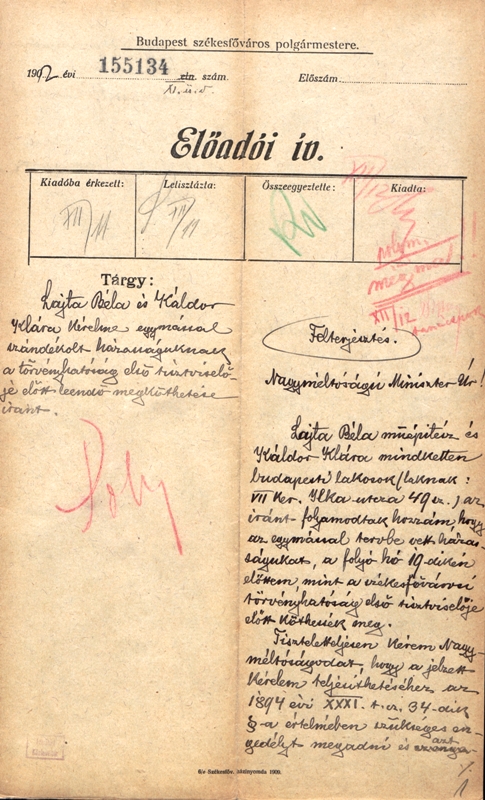 Budapest székesfőváros polgármestere.
1912 évi 155134 ein. szám.
XI. ü. o.
Előszám
Előadói ív.
Kiadóba érkezett:
Letisztázta:
Összeegyeztette:
Kiadta:
XII/11
XII/11
XII/12
polgm.
meg mai!
XII/12
Tárgy:
Lajta Béla és Káldor
Klára kérelme egymással
szándékolt házasságuknak
a törvényhatóság első tisztviselő-
je előtt leendő megköthetése
iránt.
Felterjesztés.
Nagyméltóságú Miniszter Úr!
Lajta Béla műépítész és
Káldor Klára mindketten
budapesti lakosok (laknak:
VII Ker. Ilka utcza 49 sz.) az
iránt folyamodtak hozzám, hogy
az egymással tervbe vett házas-
ságukat, a folyó hó 19-dikén
előttem, mint a székesfővárosi
törvényhatóság első tisztviselője
előtt köthessék meg.
Tiszteletteljesen kérem Nagy-
méltóságodat, hogy a jelzett
kérelem teljesíthetéséhez az
1894 évi XXXI. t. cz. 34-dik
§-a értelmében szükséges en-
gedélyt megadni és azt
Bp. Székesfőv. házinyomda 1909.
1